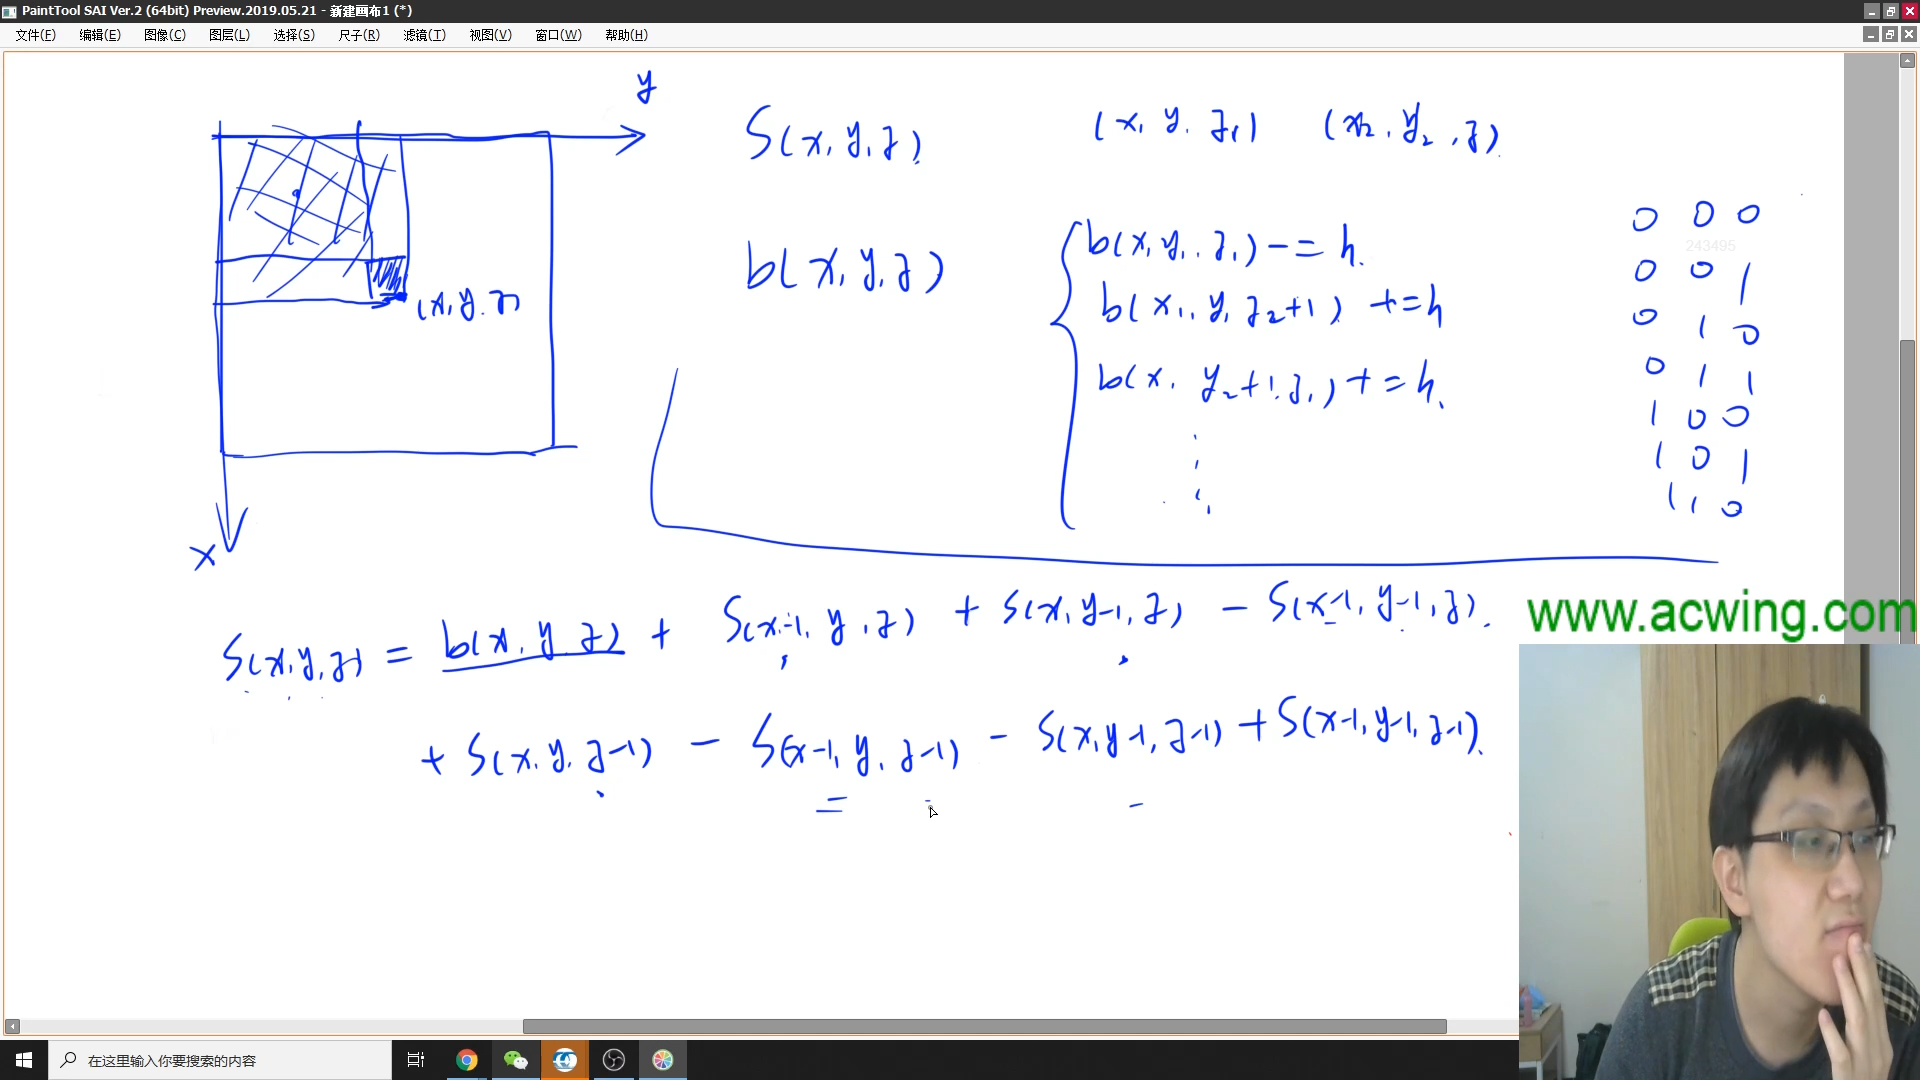 PaintTool SAI Ver.2 (64bit) Preview.2019.05.21 - 新建画布1 (*)
文件(F) 编辑(E) 图像(C) 图层(L) 选择(S) 尺子(R) 滤镜(T) 视图(V) 窗口(W) 帮助(H)
y
S(x,y,z)
(x, y, z1) (x2, y2, z)
b(x,y,z)
b(x,y1,z1) -= h
b(x1, y, z2+1) += h
b(x, y2+1, z1) += h
0 0 0
243495
0 0 1
0 1 0
0 1 1
1 0 0
1 0 1
1 1 0
(x,y,z)
x
S(x,y,z) = b(x,y,z) + S(x-1,y,z) + S(x,y-1,z) - S(x-1,y-1,z)
+ S(x,y,z-1) - S(x-1,y,z-1) - S(x,y-1,z-1) + S(x-1,y-1,z-1)
www.acwing.com
在这里输入你要搜索的内容